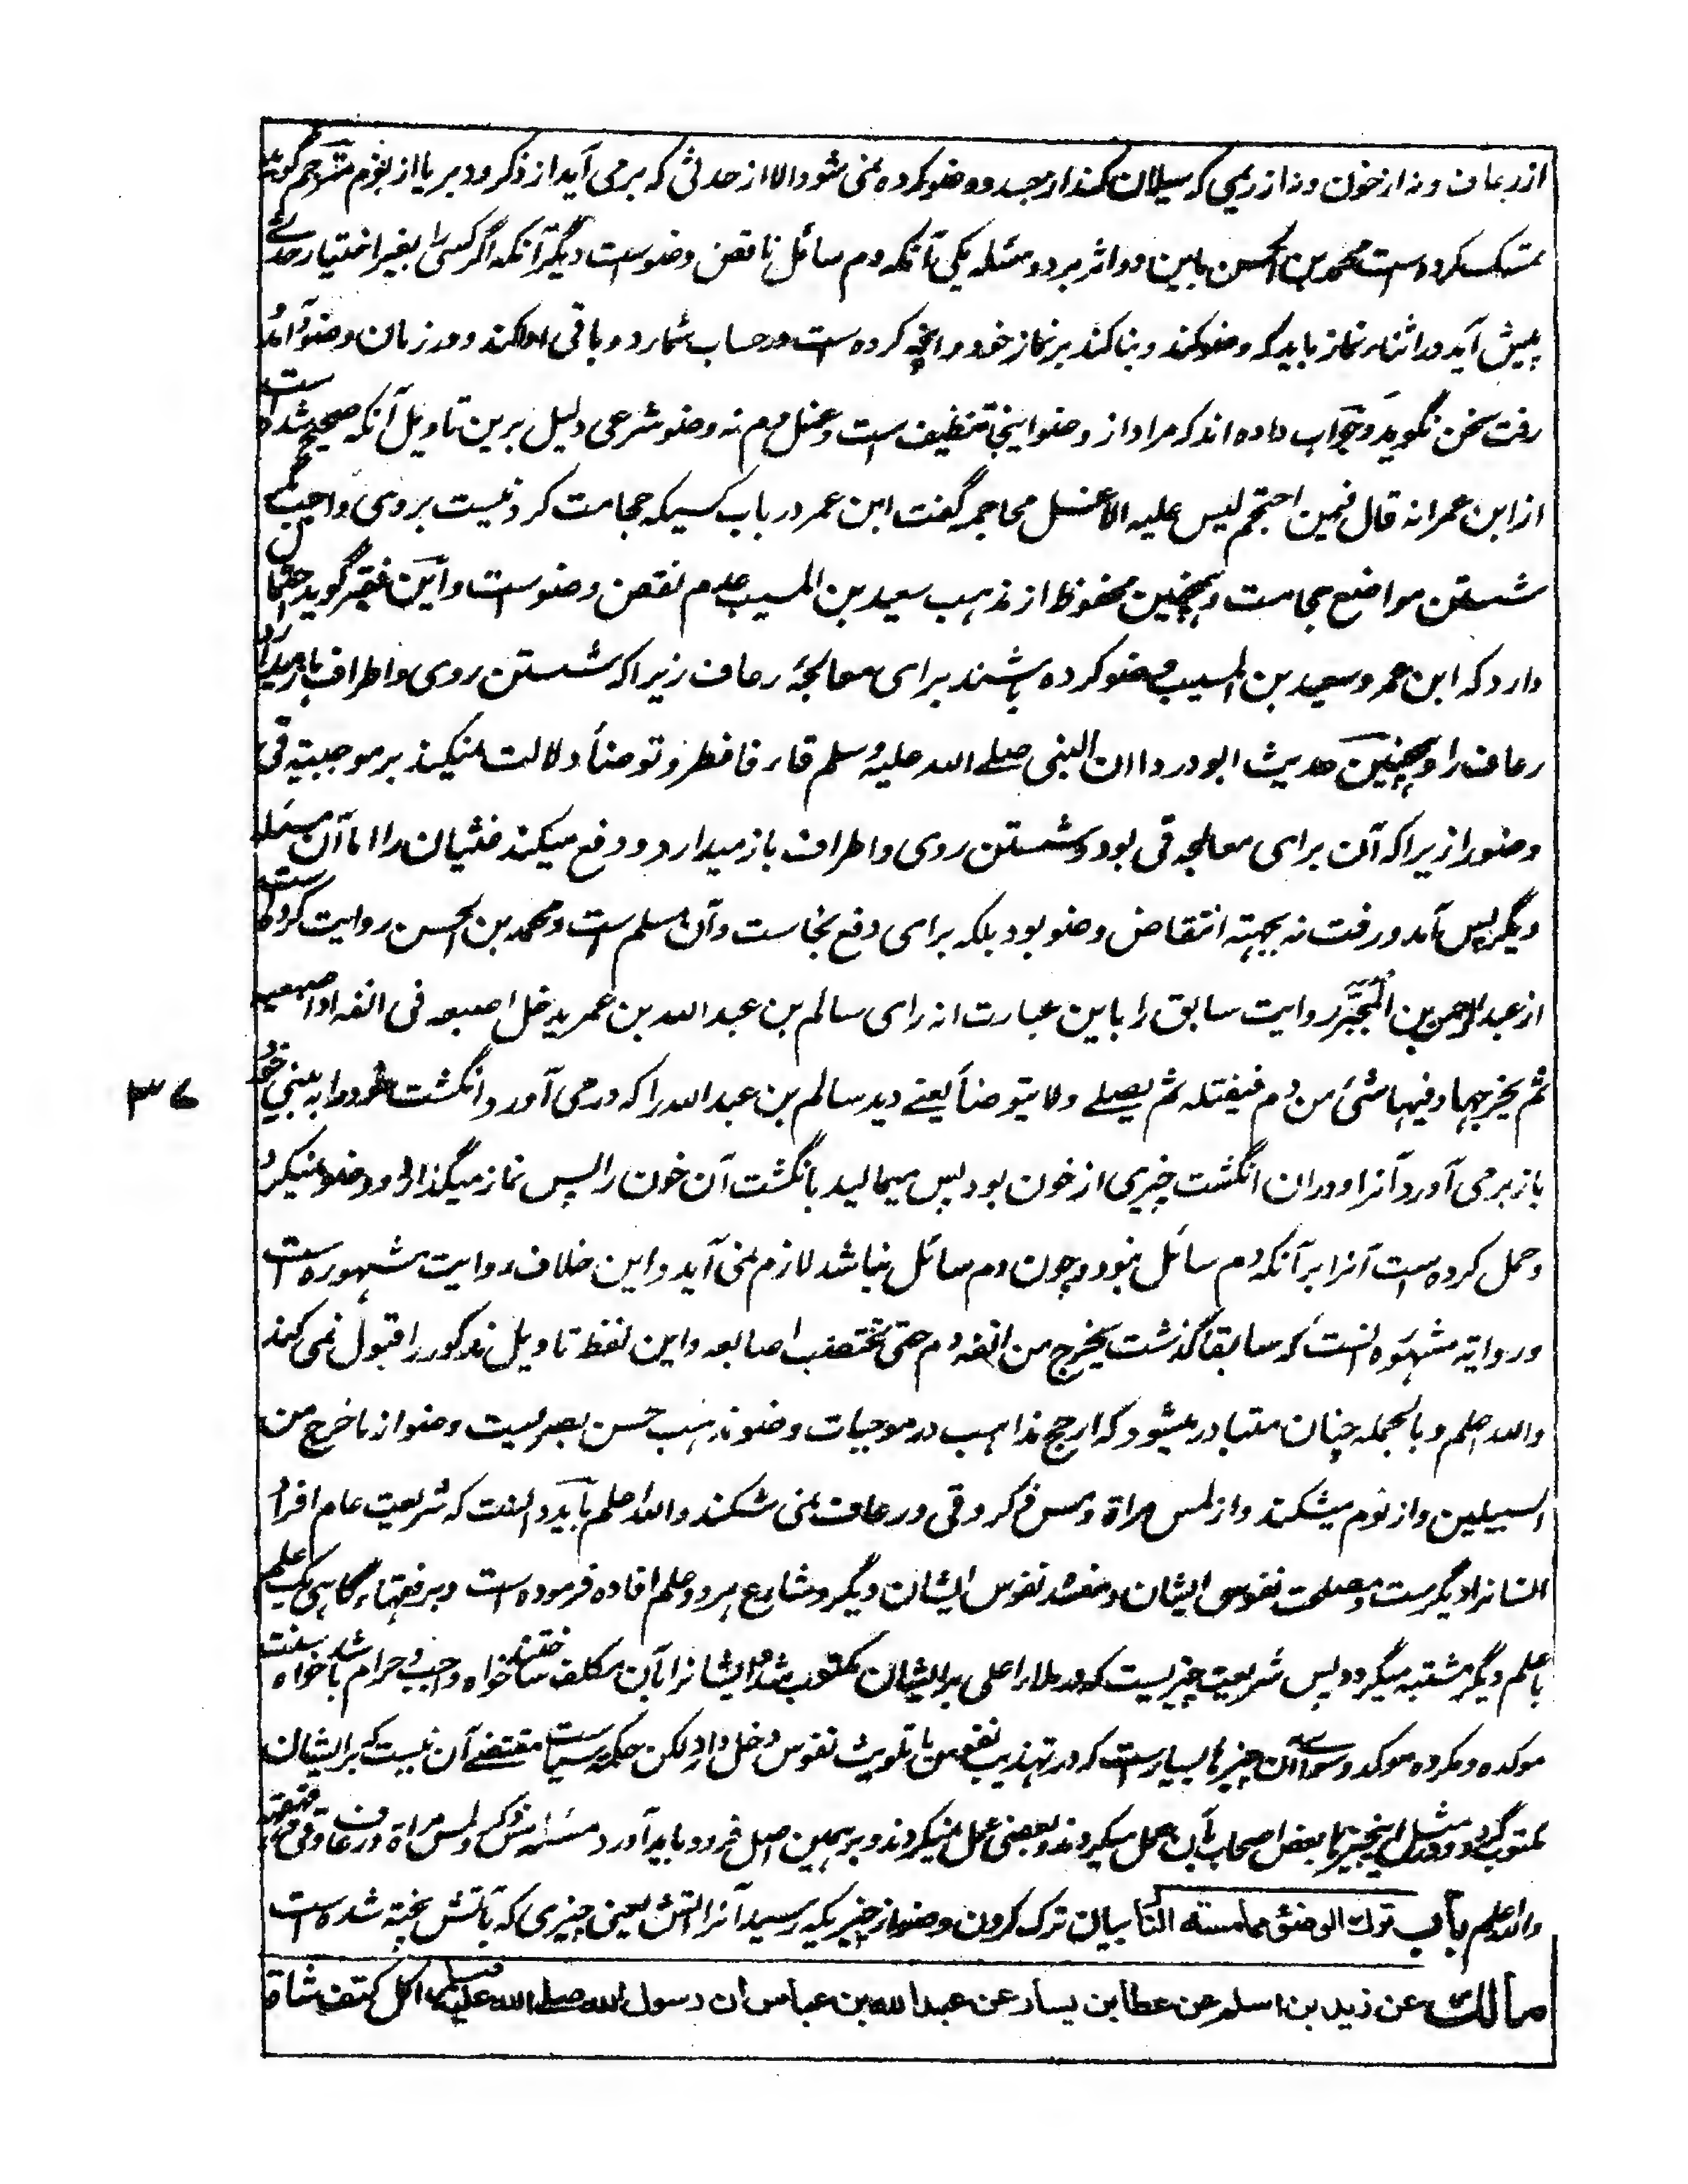 از رعاف و نه از خون و نه از ریمی که سیلان کند از جسد و وضو کرده نمی شود الا از حدثی که برمی آید از ذکر و دبر یا از نوم مترجم گوید
تمسک کرده است محمد بن الحسن باین دو اثر بر دو مسئله یکی آنکه دم سائل ناقض وضوست دیگر آنکه اگر کسی را بغیر اختیار حدثے
پیش آید در اثناء نماز باید که وضو کند و بنا کند بر نماز خود و انچه کرده است در حساب شمارد و باقی ادا کند و در زمان وضو و آمد
رفت سخن نگوید و جواب داده اند که مراد از وضو اینجا تنظیف است و غسل دم نه وضو شرعی دلیل برین تاویل آنکه صحیح شده است
از ابن عمر انه قال فیمن احتجم لیس علیه الا غسل محاجمه گفت ابن عمر در باب کسیکه حجامت کرد نیست بروی واجب مگر
شستن مواضع حجامت و همچنین محفوظ از مذهب سعید بن المسیب عدم نقض وضوست و این فقیر گوید احتمال
دارد که ابن عمر و سعید بن المسیب وضو کرده باشند برای معالجۀ رعاف زیرا که شستن روی و اطراف باز میدارد
رعاف را و همچنین حدیث ابو دردا ان النبی صلے الله علیه و سلم قاء فافطر و توضأ دلالت نمیکند بر موجبیة قی
وضو را زیرا که آن برای معالجه قی بود و شستن روی و اطراف باز میدارد و دفع میکند غثیان را اما آن مسئله
دیگر پس آمد و رفت نه بجهته انتقاض وضو بود بلکه برای دفع نجاست و آن مسلم است و محمد بن الحسن روایت کرده است
از عبد الرحمن بن المُجَبَّر روایت سابق را باین عبارت انه رای سالم بن عبد الله بن عمر یدخل اصبعه فی انفه او اصبعیه
ثم یخرجهما و فیها شئ من دم فیفتله ثم یصلے و لا یتوضأ یعنے دید سالم بن عبد الله را که درمی آورد انگشت خود را به بینی خود
باز برمی آورد آنرا و دران انگشت چیزی از خون بود پس میمالید بانگشت آن خون را پس نماز میگذارد و وضو نمیکرد
و حمل کرده است آنرا بر آنکه دم سائل نبود و چون دم سائل نباشد لازم نمی آید و این خلاف روایت مشهوره است
و روایة مشهوره آنست که سابقا گذشت یخرج من انفه دم حتی تختضب اصابعه و این لفظ تاویل مذکور را قبول نمی کند
والله اعلم و بالجمله چنان متبادر میشود که ارجح مذاهب در موجبات وضو مذهب حسن بصریست وضو از ما خرج من
السبیلین و از نوم میشکند و از لمس مراة و مس ذکر و قی و رعاف نمی شکند والله اعلم باید دانست که شریعت عام افراد
انسانرا دیگرست و مصلحت نفوس ایشان و مفسد نفوس ایشان دیگر و شارع هر دو علم افاده فرموده است و بر فقهاء گاهی یک علم
با علم دیگر مشتبه میگردد پس شریعت چیزیست که در ملاء اعلی بر ایشان مکتوب شد و ایشانرا بآن مکلف ساختند خواه واجب و حرام باشد خواه سنت
موکده و مکروه موکد و سوای آن چیزها بسیارست که در تهذیب نفوس یا تلویث نفوس دخل دارد لکن حکمت سیاست مقتضے آن نیست که بر ایشان
مکتوب گردد و در مثل این چیزها بعض اصحاب بآن عمل میکردند و بعضی عمل نمیکردند و بر همین اصل فرود باید آورد مسئله مس ذکر و لمس مراة و رعاف و قی و قهقهه
والله اعلم باب ترك الوضوء مما مسته النار بیان ترک کردن وضو از چیزیکه رسید آنرا آتش یعنی چیزی که بآتش پخته شده است
مالك عن زيد بن اسلم عن عطا بن يسار عن عبد الله بن عباس ان رسول الله صلے الله عليه وسلم اكل كتف شاة
۳۷